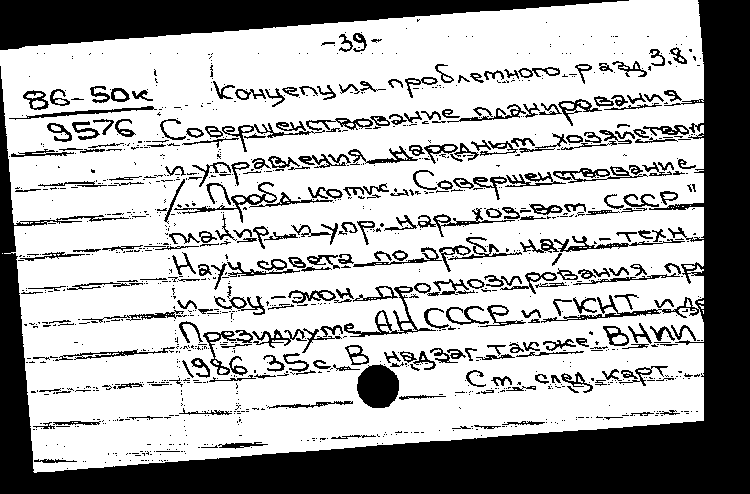 -39-
86-50к Концепция проблемного разд. 3.8:
9576 Совершенствование планирования
и управления народным хозяйством
/... Пробл. комис. „Совершенствование
планир. и упр. нар. хоз-вом СССР"
Науч. совета по пробл. науч.-техн.
и соц.-экон. прогнозирования при
Президиуме АН СССР и ГКНТ и др
1986. 35 с. В надзаг также: ВНИИ
См. след. карт.